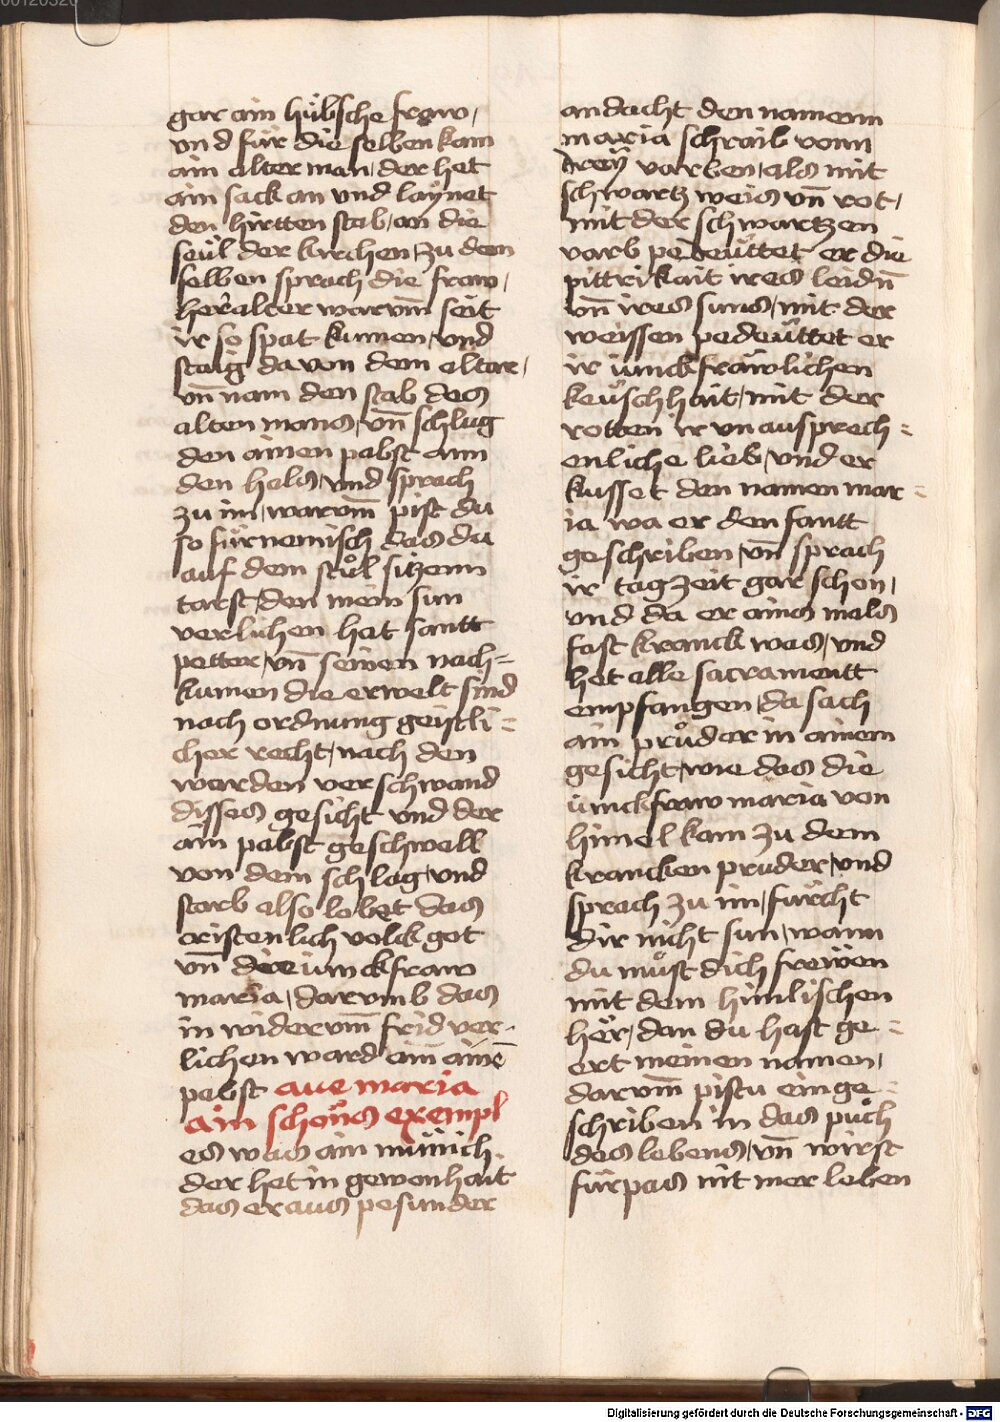 gar ain hübsche fraw,
vnd für die selben kam
ain alter man, der het
ain sack an vnd laynet
den hirtten stab, an die
seul der kirchen, zu dem
selben sprach die fraw,
her alter warum̄ seit
ir so spat kumen, vnd
staig da von dem altar,
vn̄ nam den stab des
alten mans, vn̄ schlug
den ainen pabst ann
den hals, vnd sprach
zu im, warum̄ pist du
so fürnemisch das du
auf dem stůl sitzenn
tarst, den mein sun
verlichen hat santt
petter, vn̄ seinen nach=
kumen die erwelt sind
nach ordnung geistli=
cher recht, nach den
warden verschwand
disses gesicht vnd der
ain pabst geschwall
von dem schlag, vnd
starb also lobet das
cristenlich volck got
vn̄ die iunckfraw
maria, darumb das
in widerum̄ frid ver-
lichen ward ain̄ ainē
pabst aue maria
ain schöns exempl
es was ain münich
der het in gewonhait
das er aus pesunder
andacht den namenn
maria schraib vonn
dreÿ varben, als mit
schwartz weis vn̄ rot,
mit der schwartzen
varb pedeüttet er die
pittrikait ires leidn̄
vn̄ ires suns, mit der
weissen pedeüttet er
ir iunckfräwlichen
keüschhait, mit der
rotten ir vnausprech=
enliche lieb, vnd er
kusset den namen mar=
ia wa er den fantt
geschriben, vn̄ sprach
ir tagzeit gar schon,
vnd da er ains mals
fast kranck was, vnd
het alle sacramentt
empfangen, da sach
ain průder in ainem
gesicht, wie das die
iunckfraw maria von
himel kam zu dem
krancken pruder, vnd
sprach zu im, fürcht
dir nicht sun, wann
du můst dich frewen
mit dem himlischen
her, dan du hast ge=
ert meinen namen,
darum̄ pistu einge=
schriben in das půch
des lebens, vn̄ wirst
fürpas nit mer leben
Digitalisierung gefördert durch die Deutsche Forschungsgemeinschaft - DFG